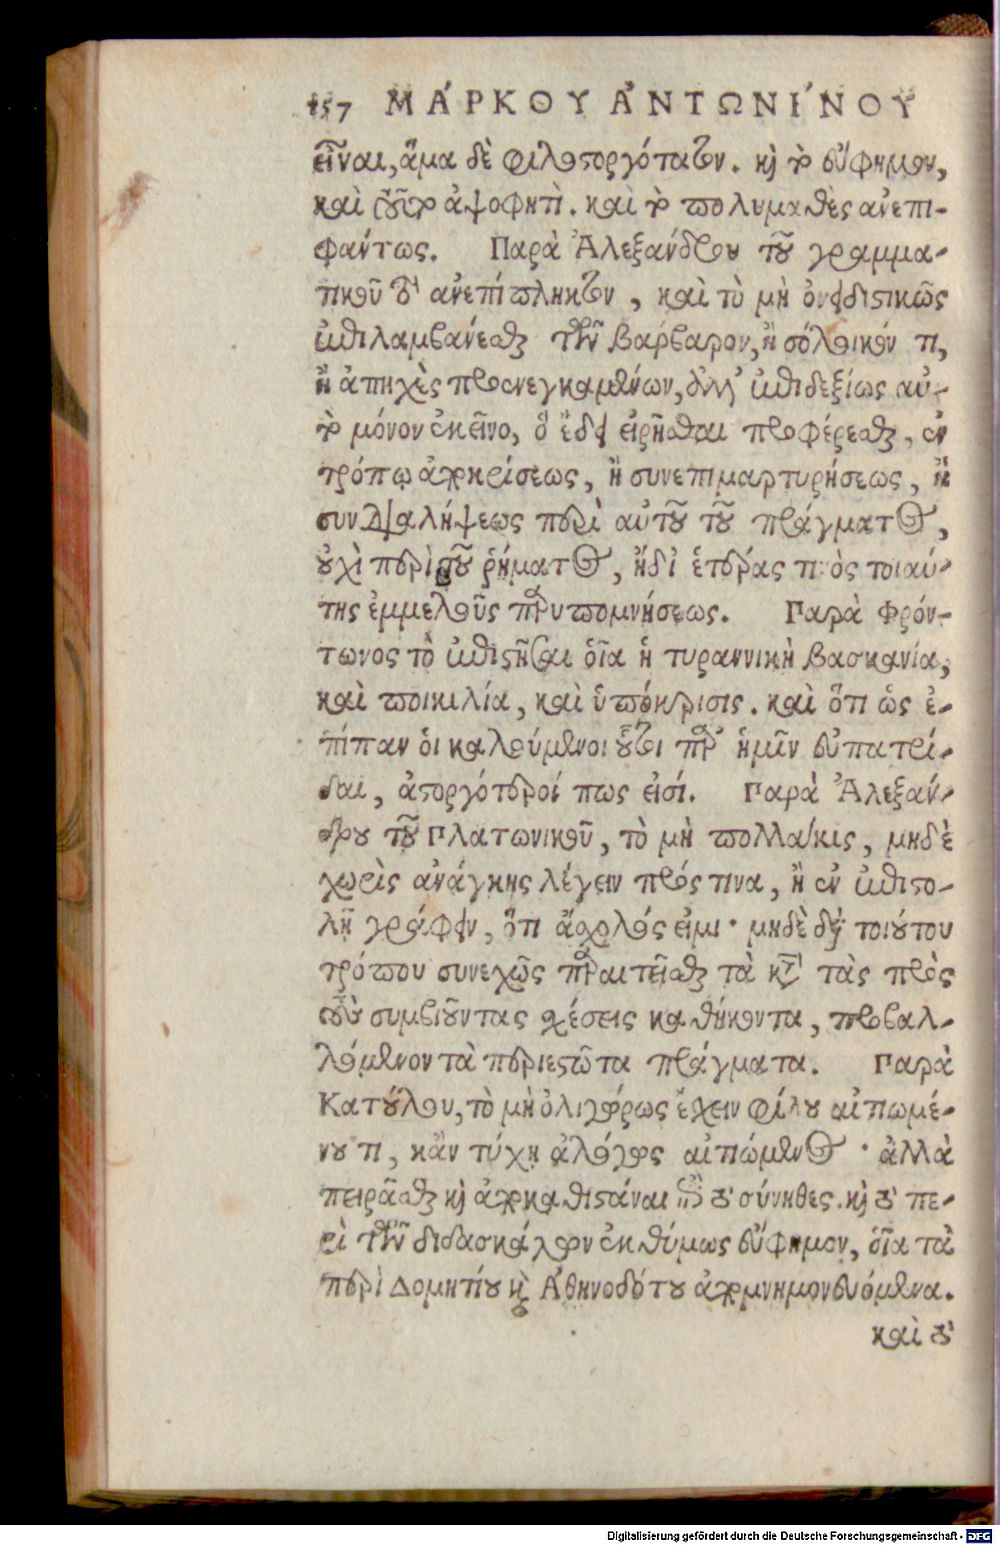 157 ΜΆΡΚΟΥ ἈΝΤΩΝΊΝΟΥ
εἶναι, ἅμα δὲ φιλοστοργότατον. καὶ τὸ εὔφημον,
καὶ τοῦτο ἀψοφητὶ. καὶ τὸ πολυμαθὲς ἀνεπι-
φάντως. Παρὰ Ἀλεξάνδρου τοῦ γραμμα-
τικοῦ τὸ ἀνεπίπληκτον, καὶ τὸ μὴ ὀνειδιστικῶς
ἐπιλαμβάνεσθαι τῶν βάρβαρον, ἢ σόλοικόν τι,
ἢ ἀπηχὲς προσενεγκαμένων, ἀλλ' ἐπιδεξίως αὐ-
τὸ μόνον ἐκεῖνο, ὃ ἔδει εἰρῆσθαι προφέρεσθαι, ἐν
τρόπῳ ἀποκρίσεως, ἢ συνεπιμαρτυρήσεως, ἢ
συνδιαλήψεως περὶ αὐτοῦ τοῦ πράγματος,
οὐχὶ περὶ τοῦ ῥήματος, ἢ δι' ἑτέρας τινὸς τοιαύ-
της ἐμμελοῦς παρυπομνήσεως. Παρὰ Φρόν-
τωνος τὸ ἐπιστῆσαι οἵα ἡ τυραννικὴ βασκανία,
καὶ ποικιλία, καὶ ὑπόκρισις. καὶ ὅτι ὡς ἐ-
πίπαν οἱ καλούμενοι οὗτοι παρ' ἡμῖν εὐπατρί-
δαι, ἀστοργότεροί πως εἰσί. Παρὰ Ἀλεξάν-
δρου τοῦ Πλατωνικοῦ, τὸ μὴ πολλάκις, μηδὲ
χωρὶς ἀνάγκης λέγειν πρός τινα, ἢ ἐν ἐπιστο-
λῇ γράφειν, ὅτι ἄσχολός εἰμι· μηδὲ διὰ τοιούτου
τρόπου συνεχῶς παραιτεῖσθαι τὰ κατὰ τὰς πρὸς
τοὺς συμβιοῦντας σχέσεις καθήκοντα, προβαλ-
λόμενον τὰ περιεστῶτα πράγματα. Παρὰ
Κατούλου, τὸ μὴ ὀλιγώρως ἔχειν φίλου αἰτιωμέ-
νου τι, κἂν τύχῃ ἀλόγως αἰτιώμενος· ἀλλὰ
πειρᾶσθαι καὶ ἀποκαθιστάναι ἐπὶ τὸ σύνηθες. καὶ τὸ πε-
ρὶ τῶν διδασκάλων ἐκθύμως εὔφημον, οἷα τὰ
περὶ Δομητίου καὶ Ἀθηνοδότου ἀπομνημονευόμενα.
καὶ τὸ
Digitalisierung gefördert durch die Deutsche Forschungsgemeinschaft - DFG